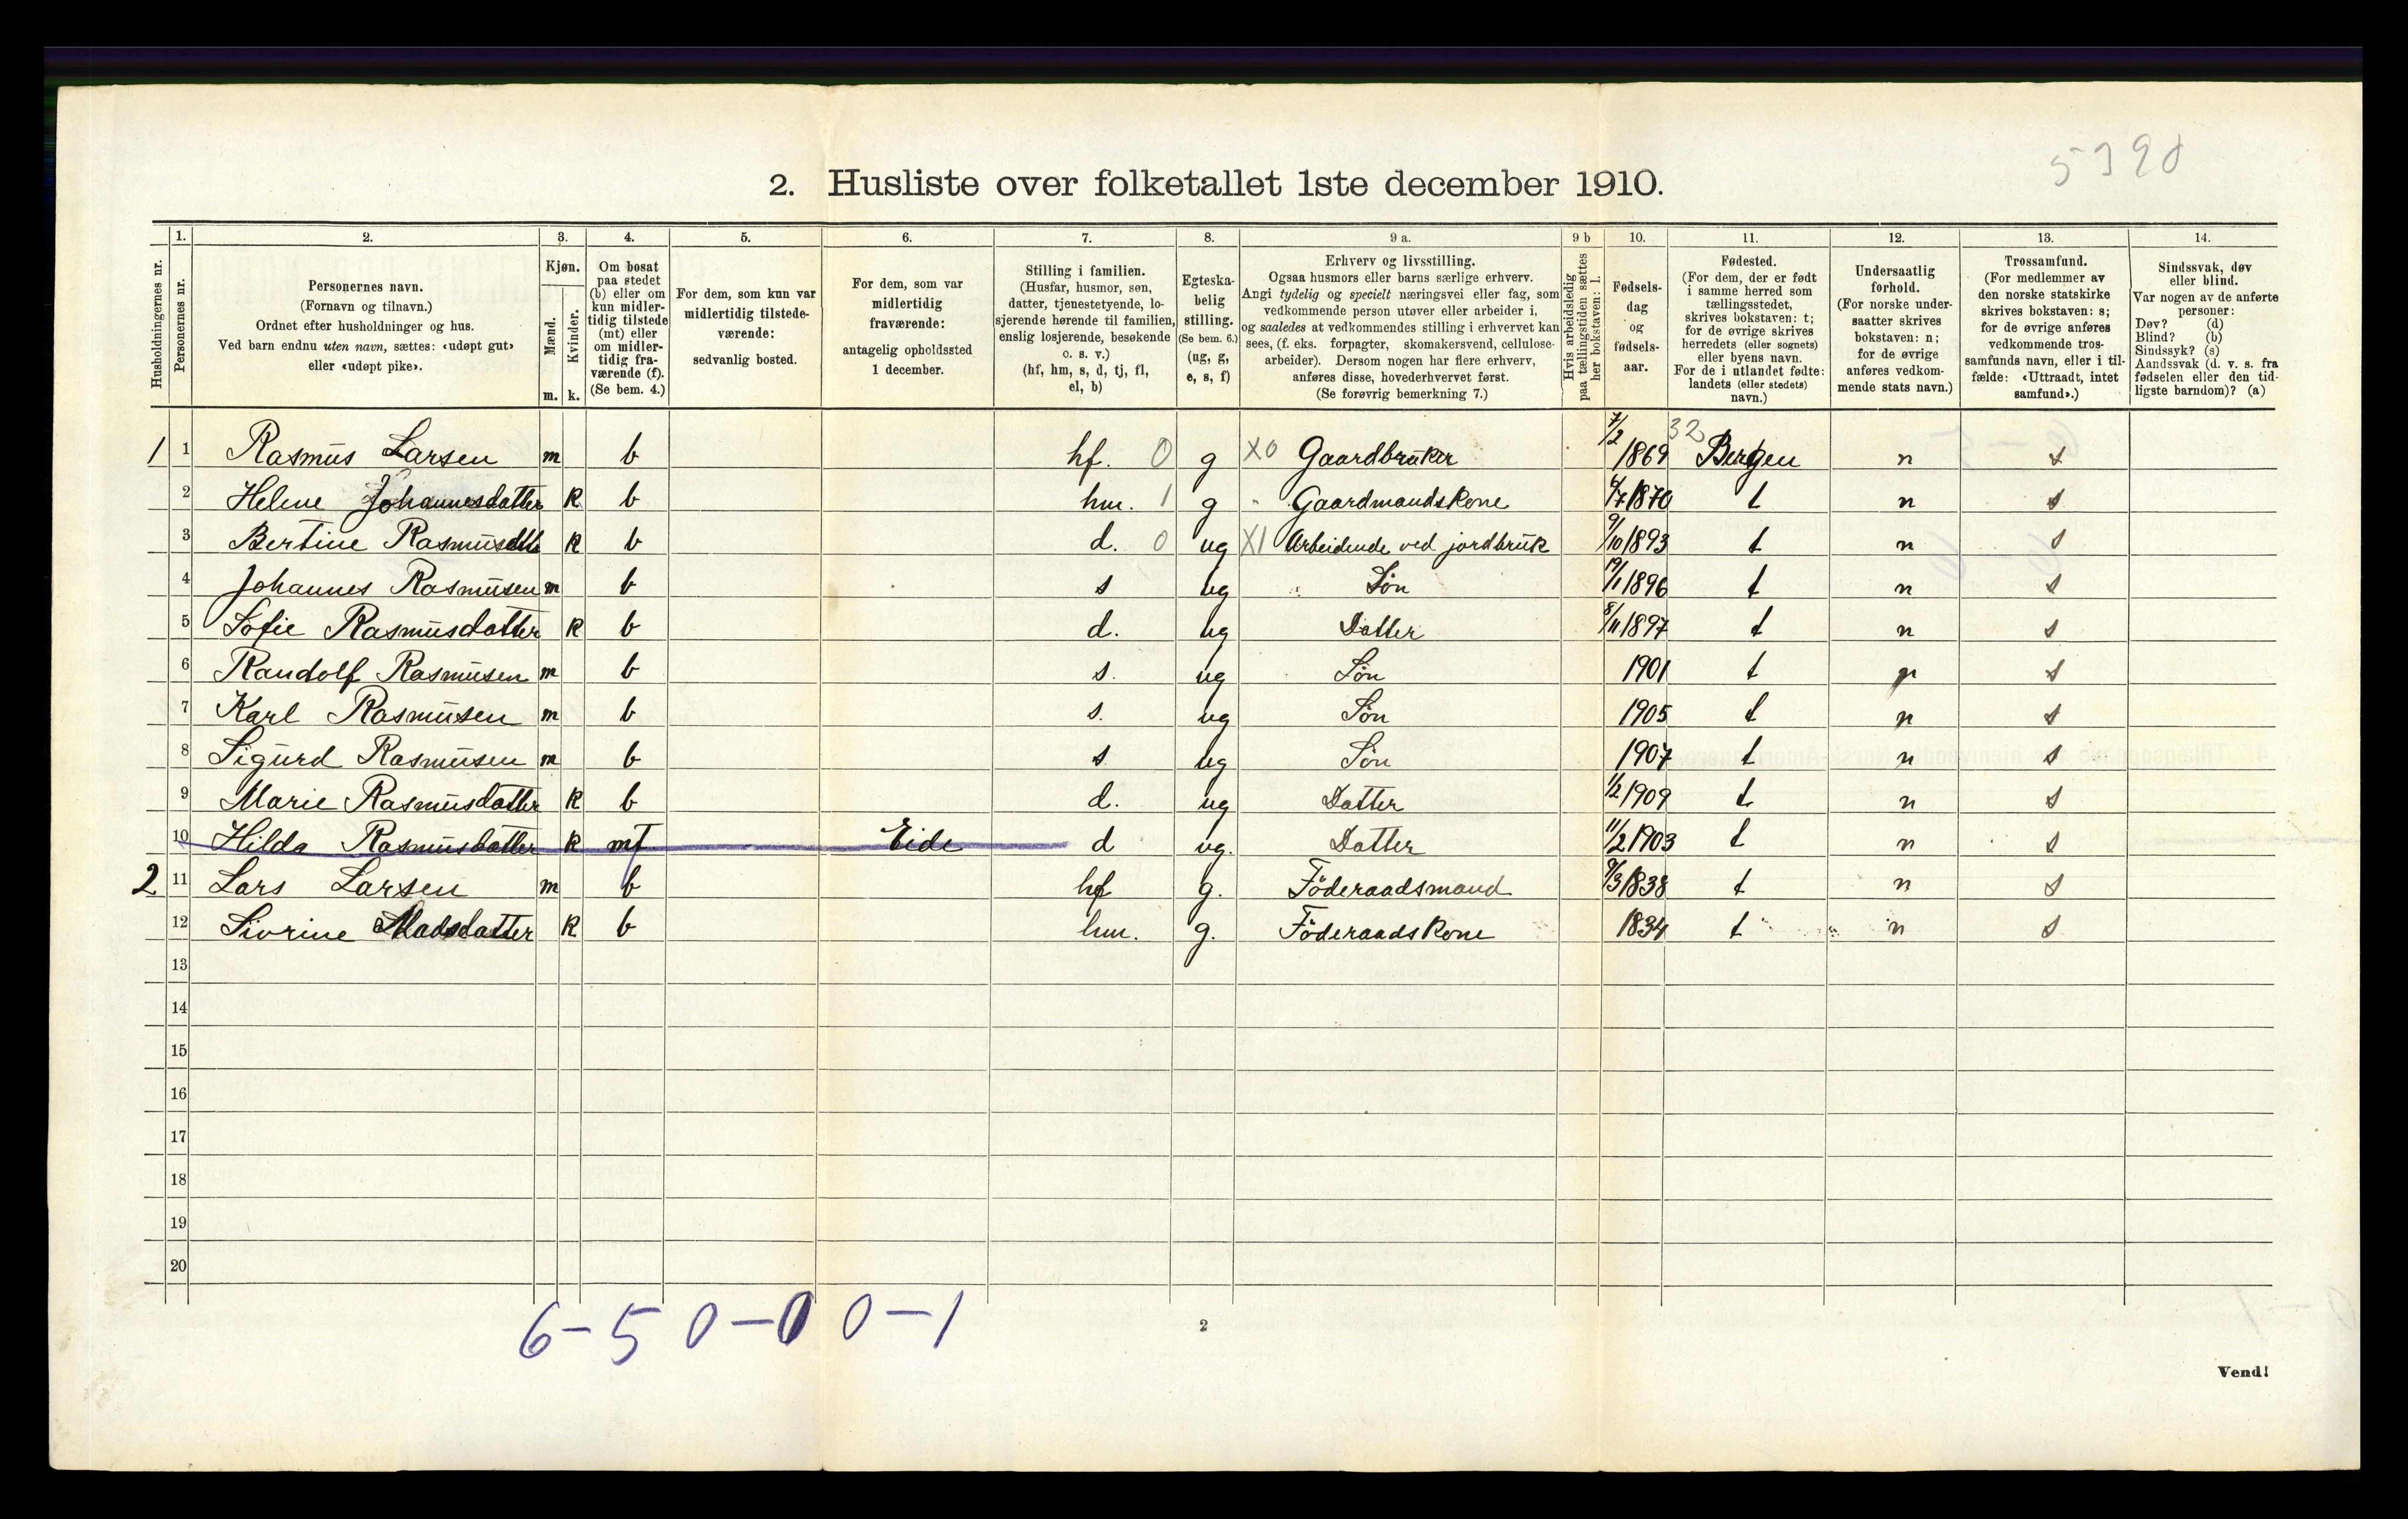 5398
2. Husliste over folketallet 1ste december 1910.
Husholdningernes nr.
1.
Personernes nr.
2.
Personernes navn.
(Fornavn og tilnavn.)
Ordnet efter husholdninger og hus.
Ved barn endnu uten navn, sættes: «udøpt gut»
eller «udøpt pike».
3.
Kjøn.
Mænd.
Kvinder.
m. k.
4.
Om bosat
paa stedet
(b) eller om
kun midler-
tidig tilstede
(mt) eller
om midler-
tidig fra-
værende (f).
(Se bem. 4.)
5.
For dem, som kun var
midlertidig tilstede-
værende:
sedvanlig bosted.
6.
For dem, som var
midlertidig
fraværende:
antagelig opholdssted
1 december.
7.
Stilling i familien.
(Husfar, husmor, søn,
datter, tjenestetyende, lo-
sjerende hørende til familien,
enslig losjerende, besøkende
o. s. v.)
(hf, hm, s, d, tj, fl,
el, b)
8.
Egteska-
belig
stilling.
(Se bem. 6.)
(ug, g,
e, s, f)
9 a.
Erhverv og livsstilling.
Ogsaa husmors eller barns særlige erhverv.
Angi tydelig og specielt næringsvei eller fag, som
vedkommende person utøver eller arbeider i,
og saaledes at vedkommendes stilling i erhvervet kan
sees, (f. eks. forpagter, skomakersvend, cellulose-
arbeider). Dersom nogen har flere erhverv,
anføres disse, hovederhvervet først.
(Se forøvrig bemerkning 7.)
9 b
Hvis arbeidsledig
paa tællingstiden sættes
her bokstaven: l.
10.
Fødsels-
dag
og
fødsels-
aar.
11.
Fødested.
(For dem, der er født
i samme herred som
tællingsstedet,
skrives bokstaven: t;
for de øvrige skrives
herredets (eller sognets)
eller byens navn.
For de i utlandet fødte:
landets (eller stedets)
navn.)
12.
Undersaatlig
forhold.
(For norske under-
saatter skrives
bokstaven: n;
for de øvrige
anføres vedkom-
mende stats navn.)
13.
Trossamfund.
(For medlemmer av
den norske statskirke
skrives bokstaven: s;
for de øvrige anføres
vedkommende tros-
samfunds navn, eller i til-
fælde: «Uttraadt, intet
samfund».)
14.
Sindssvak, døv
eller blind.
Var nogen av de anførte
personer:
Døv? (d)
Blind? (b)
Sindssyk? (s)
Aandssvak (d. v. s. fra
fødselen eller den tid-
ligste barndom)? (a)
1 1 Rasmus Larsen m b hf. 0 g X0 Gaardbruker 7/2 1869 32 Bergen n s
2 Helene Johannesdatter k b hm. 1 g " Gaardmandskone 1870 t n s
3 Bertine Rasmusdtt k b d. 0 ug X1 Arbeidende ved jordbruk 9/10 1893 t n s
4 Johannes Rasmusen m b s ug Søn 19/1 1896 t n s
5 Sofie Rasmusdatter k b d. ug Datter 8/11 1897 t n s
6 Randolf Rasmusen m b s. ug Søn 1901 t n s
7 Karl Rasmusen m b s. ug Søn 1905 t n s
8 Sigurd Rasmusen m b s ug Søn 1907 t n s
9 Marie Rasmusdatter k b d. ug Datter 1/2 1909 t n s
10 Hilda Rasmusdatter k mt Eide d ug. Datter 11/2 1903 t n s
2 11 Lars Larsen m b hf g. Föderaadsmand 9/3 1838 t n s
12 Sivrine Madsdatter k b hm. g. Föderaadskone 1834 t n s
13
14
15
16
17
18
19
20
6-5 0-0 0-1
2
Vend!